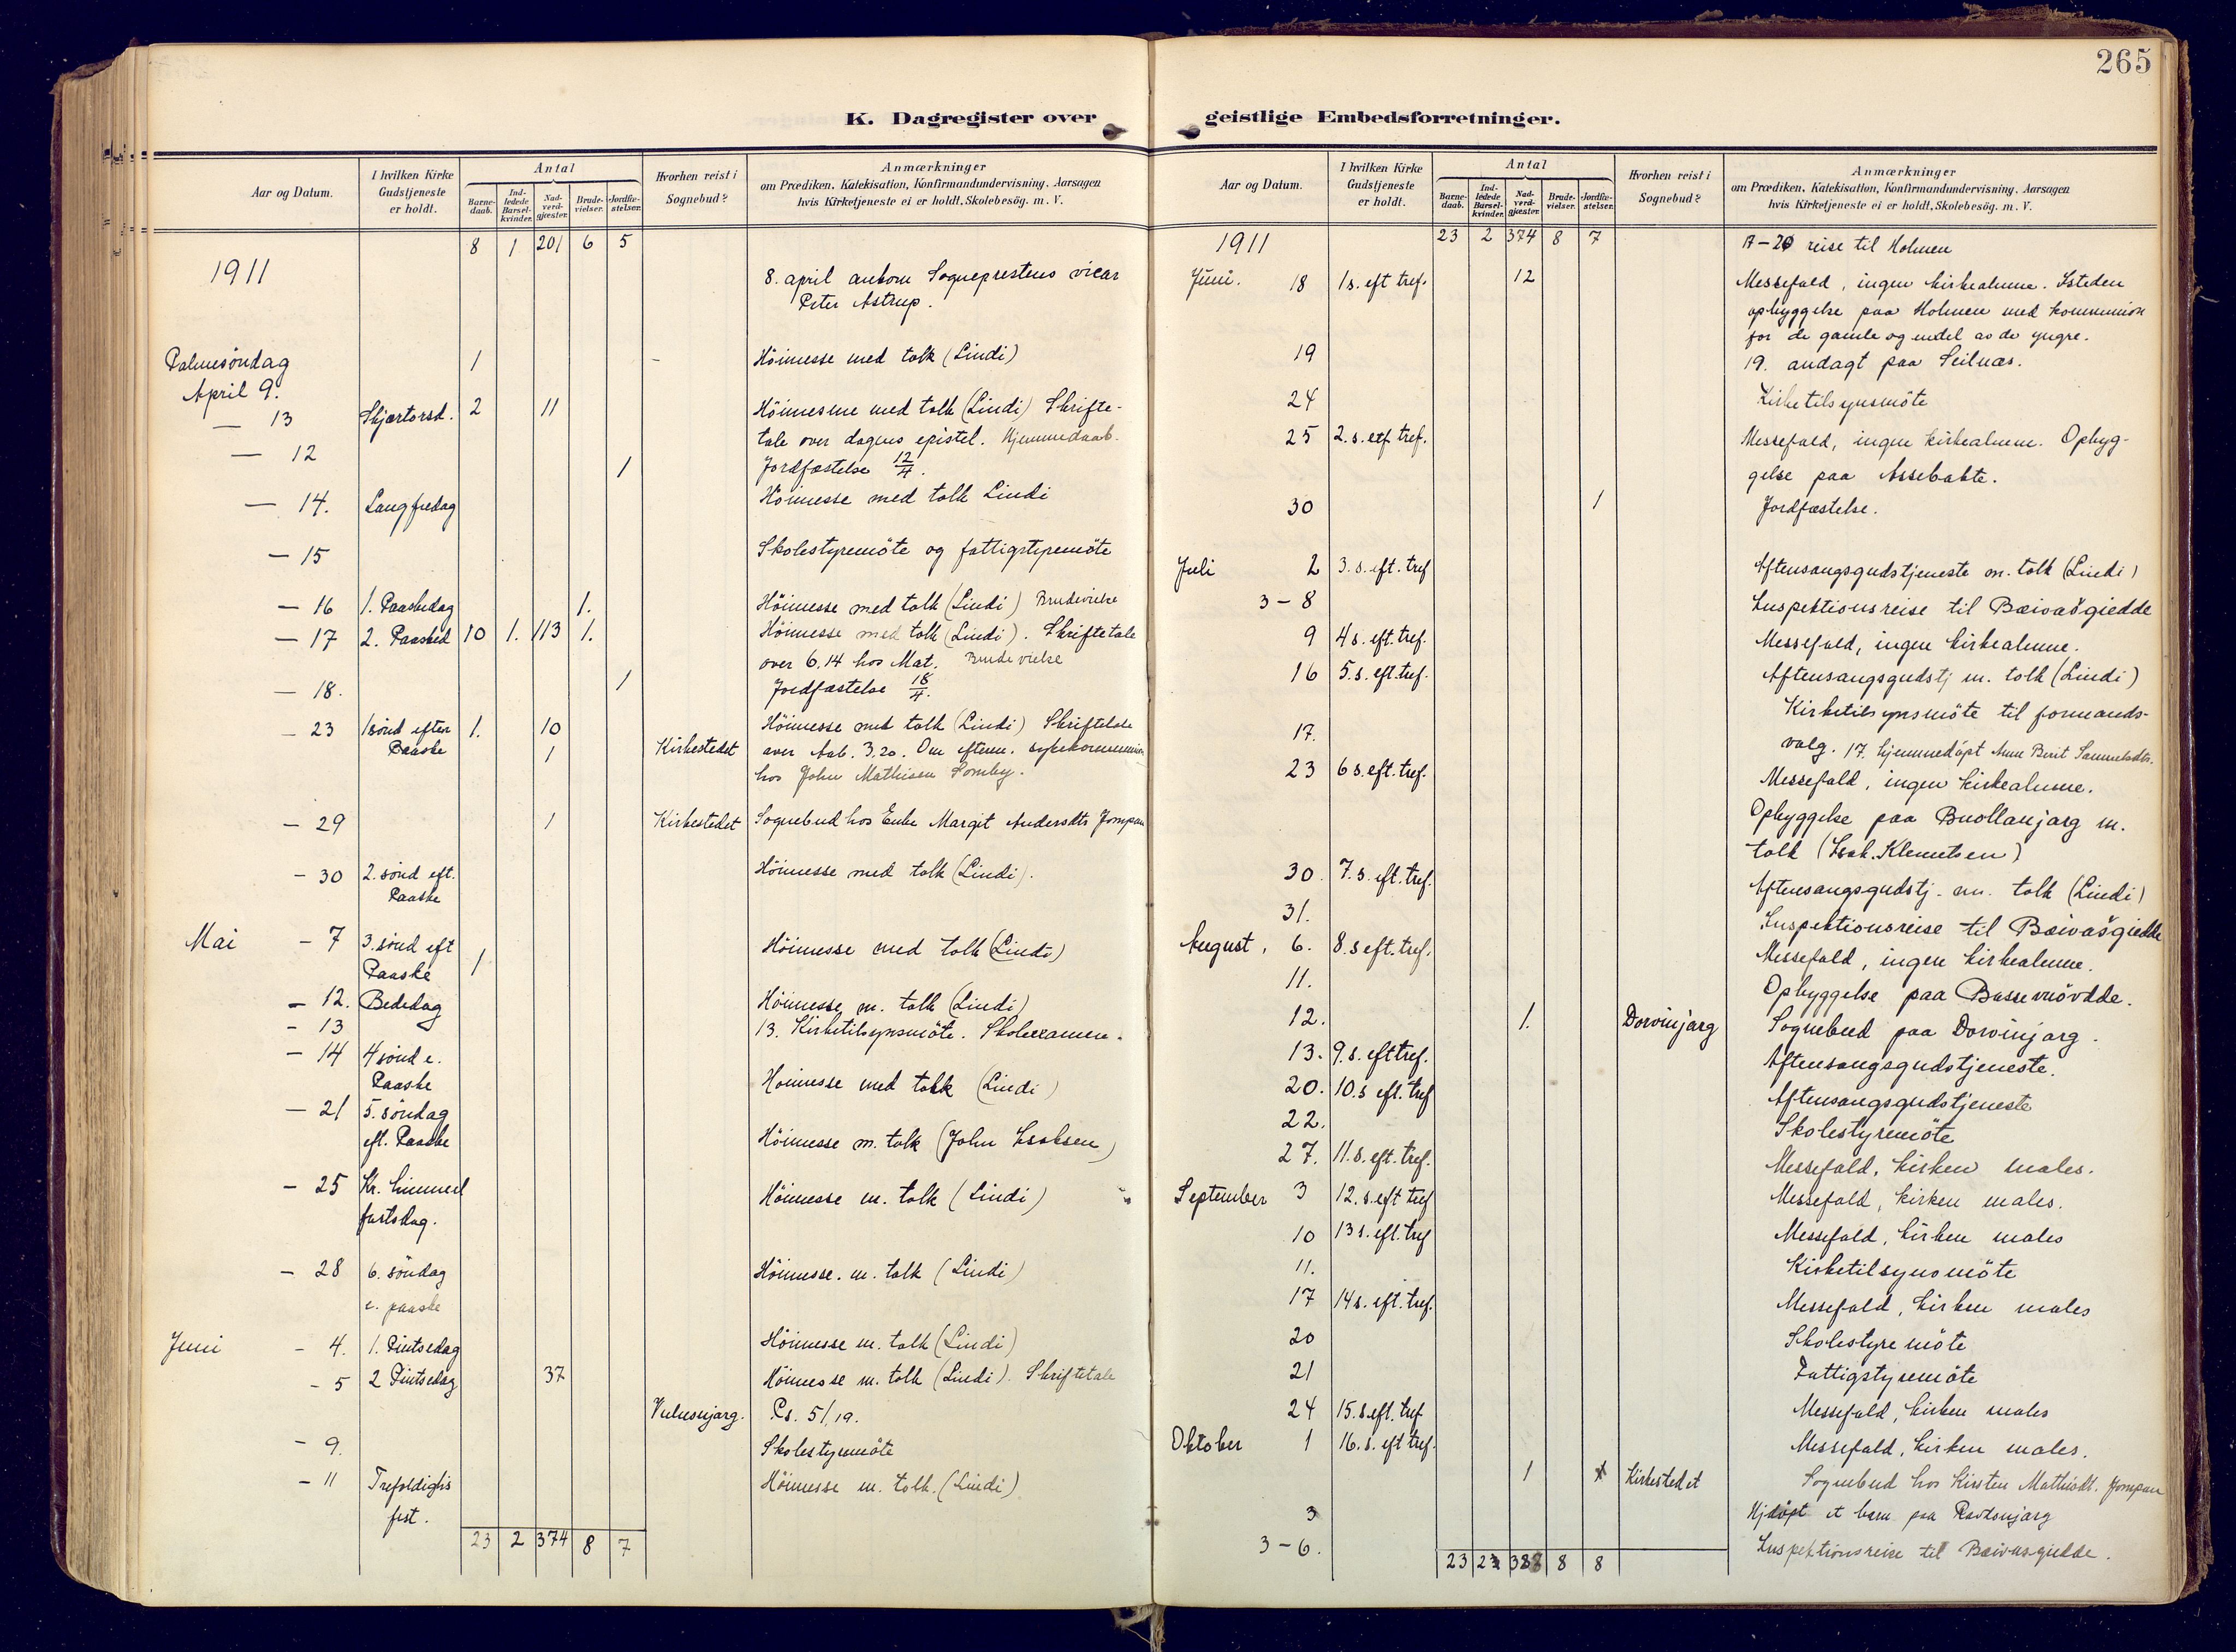 265
K. Dagregister over geistlige Embedsforretninger.
Aar og Datum. | I hvilken Kirke Gudstjeneste er holdt. | Antal | Barne-daab. | Ind-ledede Barsel-kvinder. | Nad-verd-gjæster. | Brude-vielser. | Jordfæ-stelser. | Hvorhen reist i Sognebud? | Anmærkninger om Prædiken, Katekisation, Konfirmandundervisning, Aarsagen hvis Kirketjeneste ei er holdt, Skolebesøg. m. V.
8 1 201 6 5
1911 8. april ankom Sogneprestens vicar
Peter Astrup.
Palmesöndag 1 Höimesse med tolk (Lindi)
April 9.
— 13 Skjærtorsd. 2 11 Höimesse med tolk (Lindi) Skrifte-
tale over dagens epistel. Hjemmedaab.
— 12 1 Jordfæstelse 12/4.
— 14. Langfredag Höimesse med tolk Lindi
— 15 Skolestyremöte og fattigstyremöte
— 16 1. Paaskedag 1. Höimesse med tolk (Lindi) Brudevielse
— 17 2. Paasked 10 1. 113 1. Höimesse med tolk (Lindi). Skriftetale
over 6.14 hos Mat. Brudevielse
— 18. 1 Jordfæstelse 18/4.
— 23 1 sönd efter 1. 10 Höimesse med tolk (Lindi) Skriftetale
Paaske 1 Kirkestedet over Aab. 3 20. Om efterm. sykekommunion
hos John Mathisen Somby.
— 29 1 Kirkestedet Sognebud hos Enke Margit Andersdtr Jompan
— 30 2. sönd eft. Höimesse med tolk (Lindi).
Paaske
Mai — 7 3. sönd eft Höimesse med tolk (Lindi)
Paaske 1
— 12. Bededag Höimesse m. tolk (Lindi)
— 13 13. Kirketilsynsmöte. Skoleexamen.
— 14 4 sönd e.
Paaske Höimesse med tolk (Lindi)
— 21 5. söndag
eft. Paaske Höimesse m. tolk (John Isaksen)
— 25 Kr. himmel Höimesse m. tolk (Lindi)
fartsdag.
— 28 6. söndag Höimesse. m. tolk (Lindi)
e. paaske
Juni — 4. 1. Pintsedag Höimesse m. tolk (Lindi)
— 5 2 Pintsedag 37 Höimesse m. tolk (Lindi). Skriftetale
Ps. 51,19.
— 9. Skolestyremöte
— 11 Trefoldighs Höimesse m. tolk. (Lindi)
fest.
23 2 374 8 7
Aar og Datum. | I hvilken Kirke Gudstjeneste er holdt. | Antal | Barne-daab. | Ind-ledede Barsel-kvinder. | Nad-verd-gjæster. | Brude-vielser. | Jordfæ-stelser. | Hvorhen reist i Sognebud? | Anmærkninger om Prædiken, Katekisation, Konfirmandundervisning, Aarsagen hvis Kirketjeneste ei er holdt, Skolebesøg. m. V.
1911 23 2 374 8 7 17–20 reise til Holmen
Juni. 18 1 s. eft tref. 12 Messefald, ingen kirkealmue. Isteden
opbyggelse paa Holmen med kommunion
for de gamle og endel av de yngre.
19 19. andagt paa Seilnæs.
24 Kirketilsynsmöte
25 2. s. eft tref. Messefald, ingen kirkealmue. Opbyg-
gelse paa Assebakte.
30 1 Jordfæstelse.
Juli 2 3. s. eft. tref Aftensangsgudstjeneste m. tolk (Lindi)
3–8 Inspektionsreise til Bæivašgiedde
9 4 s. eft. tref. Messefald, ingen kirkealmue.
16 5. s. eft. tref. Aftensangsgudstj m. tolk (Lindi)
Kirketilsynsmöte til formands-
17. valg. 17. hjemmedöpt Anne Berit Samuelsdtr.
23 6 s. eft. tref. Messefald, ingen kirkealmue.
Opbyggelse paa Buollanjarg m.
tolk (Isak. Klemetsen)
30. 7. s. eft. tref. Aftensangsgudstj. m. tolk (Lindi)
31. Inspektionsreise til Bæivašgiedde
August, 6. 8. s eft. tref. Messefald, ingen kirkealmue.
11. Opbyggelse paa Bassevuövdde.
12. 1. Dorvinjarg Sognebud paa Dorvinjarg.
13. 9. s. eft tref. Aftensangsgudstjeneste.
20. 10. s eft. tref Aftensangsgudstjeneste
22. Skolestyremöte
27. 11. s. eft. tref. Messefald, kirken males.
September 3 12. s. eft tref Messefald, kirken males.
10 13 s. eft. tref Messefald, kirken males
11. Kirketilsynsmöte
17 14 s. eft. tref. Messefald, kirken males
20 Skolestyremöte
21 Fattigstyremöte
24 15. s. eft. tref Messefald, kirken males
Oktober 1 16. s. eft tref. Messefald, kirken males.
1 Kirkestedet Sognebud hos Kirsten Mathisdt. Jompan
3 Hjdöpt et barn paa
3–6. Inspektionsreise til Bæivasgiedde.
23 2 8 8